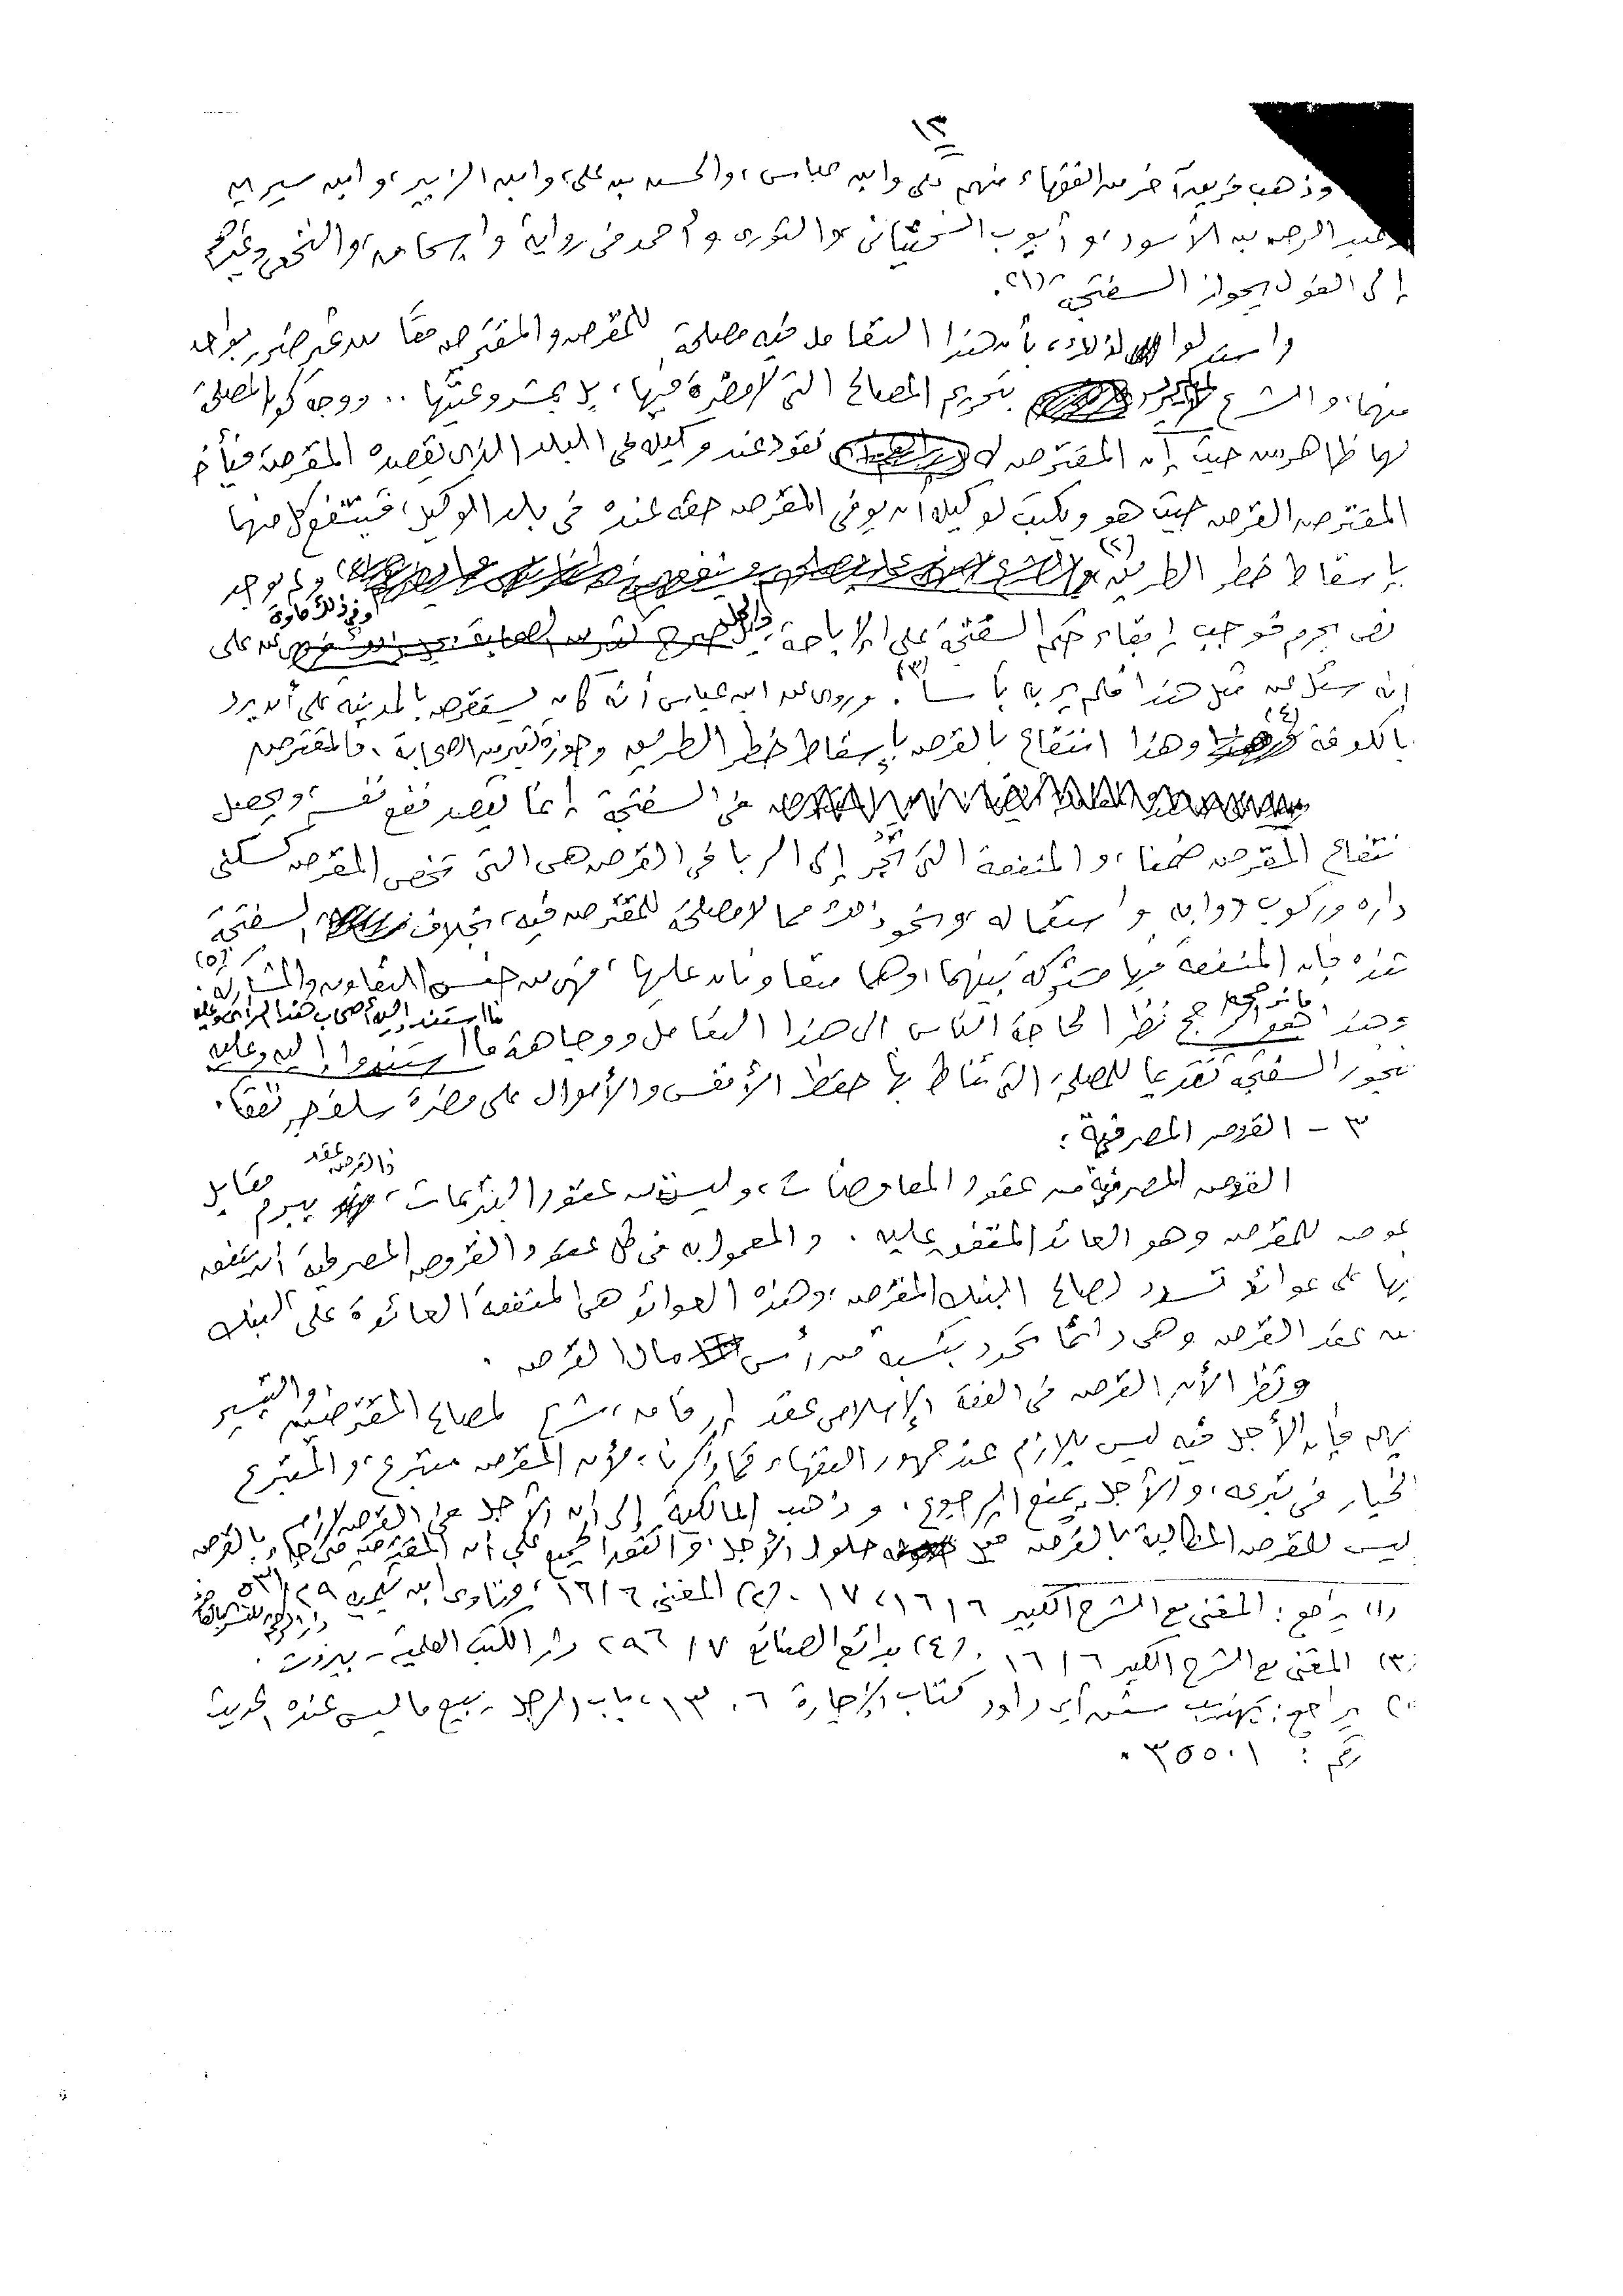 ١٣
وذهب فريق آخر من الفقهاء منهم على وابن عباس، والحسن بن على، وابن الزبير، وابن سيرين
وعبد الرحمن بن الأسود، وأيوب السختيانى والثورى وأحمد فى رواية وإسحاق، والنخعى وغيرهم
إلى القول بجواز السفتجة (١).
واستدلوا لذلك، بأن هذا التعامل فيه مصلحة للمقرض والمقترض معًا من غير ضرر بواحد
منهما، والشرع لم يرد بتحريم المصالح التى لا مضرة فيها، بل بمشروعيتها .. ووجه كون المصلحة
لهما ظاهر من حيث إن المقترض له نقود عند وكيله فى البلد الذى يقصده المقرض فيأخذ
المقترض القرض حيث هو ويكتب لوكيله أن يوفى المقرض حقه عنده فى بلد الوكيل، فينتفع كل منهما
بإسقاط خطر الطريق (٢) ولم يوجد
نص يحرم فوجب إبقاء حكم السفتجة على الإباحة، عن على
أنه سئل عن مثل هذا فلم ير به بأسا (٣). وروى عن ابن عباس أنه كان يستقرض بالمدينة على أن يرد
بالكوفة (٤) وهذا انتفاع بالقرض بإسقاط خطر الطريق وجوزه كثير من الصحابة، فالمقترض
فى السفتجة إنما يقصد نفع نفسه، ويحصل
انتفاع المقرض ضمنا، والمنفعة التى تجر إلى الربا فى القرض هى التى تخص المقرض كسكنى
داره وركوب دوابه واستعماله ونحو ذلك مما لا مصلحة للمقترض فيه، بخلاف السفتجة
هذه فإن المنفعة فيها مشتركة بينهما وهما متعاونان عليها، فهى من جنس التعاون والمشاركة (٥).
وهذا ما نرجحه نظرا لحاجة الناس الى هذا التعامل ووجاهة ما استند إليه أصحاب هذا الرأى وعليه
تجوز السفتجة تقديما للمصلحة التى تناط بها حفظ الأنفس والأموال على مضرة سلف جر نفعا.
٣ - القروض المصرفية:
القروض المصرفية من عقود المعاوضات، وليست من عقود التبرعات، فالقرض عقد يبرم مقابل
عوض للمقرض وهو العائد المتفق عليه. والمعمول به فى كل عقود القروض المصرفية أن يتفق
فيها على عوائد تسدد لصالح البنك المقرض، وهذه العوائد هى المنفعة العائدة على البنك
من عقد القرض وهى دائمًا تحدد بنسبة من رأس مال القرض.
ونظرا لأن القرض فى الفقه الإسلامى عقد إرفاق، شرع لمصالح المقترضين والتيسير
لهم فإن الأجل فيه ليس بلازم عند جمهور الفقهاء كما ذكرنا، لأن المقرض متبرع، والمتبرع
بالخيار فى تبرعه، والأجل يمنع الرجوع. وذهب المالكية إلى أن الأجل فى القرض لازم
ليس للمقرض المطالبة بالقرض قبل حلول الأجل، والقول الجميع على أن المقترض متى جاء بالقرض
(١) يراجع: المغنى مع الشرح الكبير ٦/ ١٦، ١٧. (٢) المغنى ٦/ ١٦، وفتاوى ابن تيمية ٢٩/ ٥٣١
(٣) المغنى مع الشرح الكبير ٦/ ١٦. (٤) بدائع الصنائع ٧/ ٢٩٦ دار الكتب العلمية - بيروت.
يراجع: تهذيب سنن أبى داود كتاب الإجارة ١٣٠٦، باب الرجل يبيع ما ليس عنده الحديث
رقم: ٣٥٥٠١.